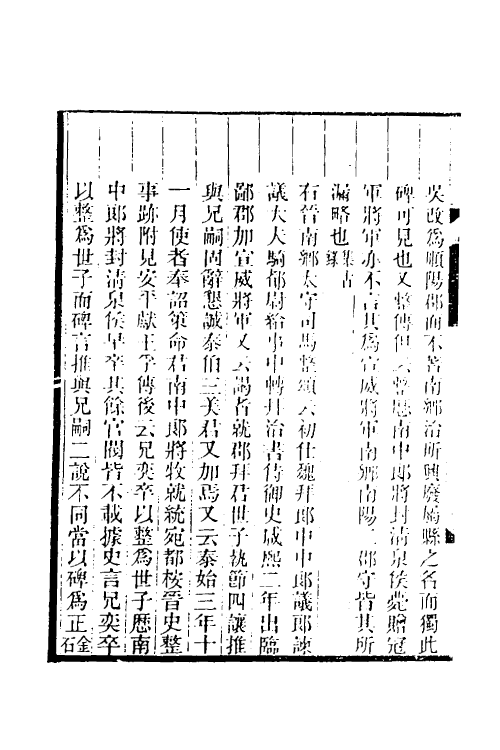 吳改爲順陽郡而不著南鄉治所興廢屬縣之名而獨此
碑可見也又整傳但云整歷南中郎將封清泉侯薨贈冠
軍將軍亦不言其爲宣威將軍南鄉南陽二郡守皆其所
漏略也集古錄
右晉南鄉太守司馬整頌云初仕魏拜郎中中郎議郎諫
議大夫騎都尉給事中轉拜治書侍御史咸熙二年出臨
鄙郡加宣威將軍又云謁者就郡拜君世子執節四讓推
與兄嗣固辭懇誠泰伯三美君又加焉又云泰始三年十
一月使者奉詔策命君南中郎將牧就統宛都按晉史整
事跡附見安平獻王孚傳後云兄奕卒以整爲世子歷南
中郎將封清泉侯早卒其餘官閥皆不載據史言兄奕卒
以整爲世子而碑言推與兄嗣二說不同當以碑爲正金石